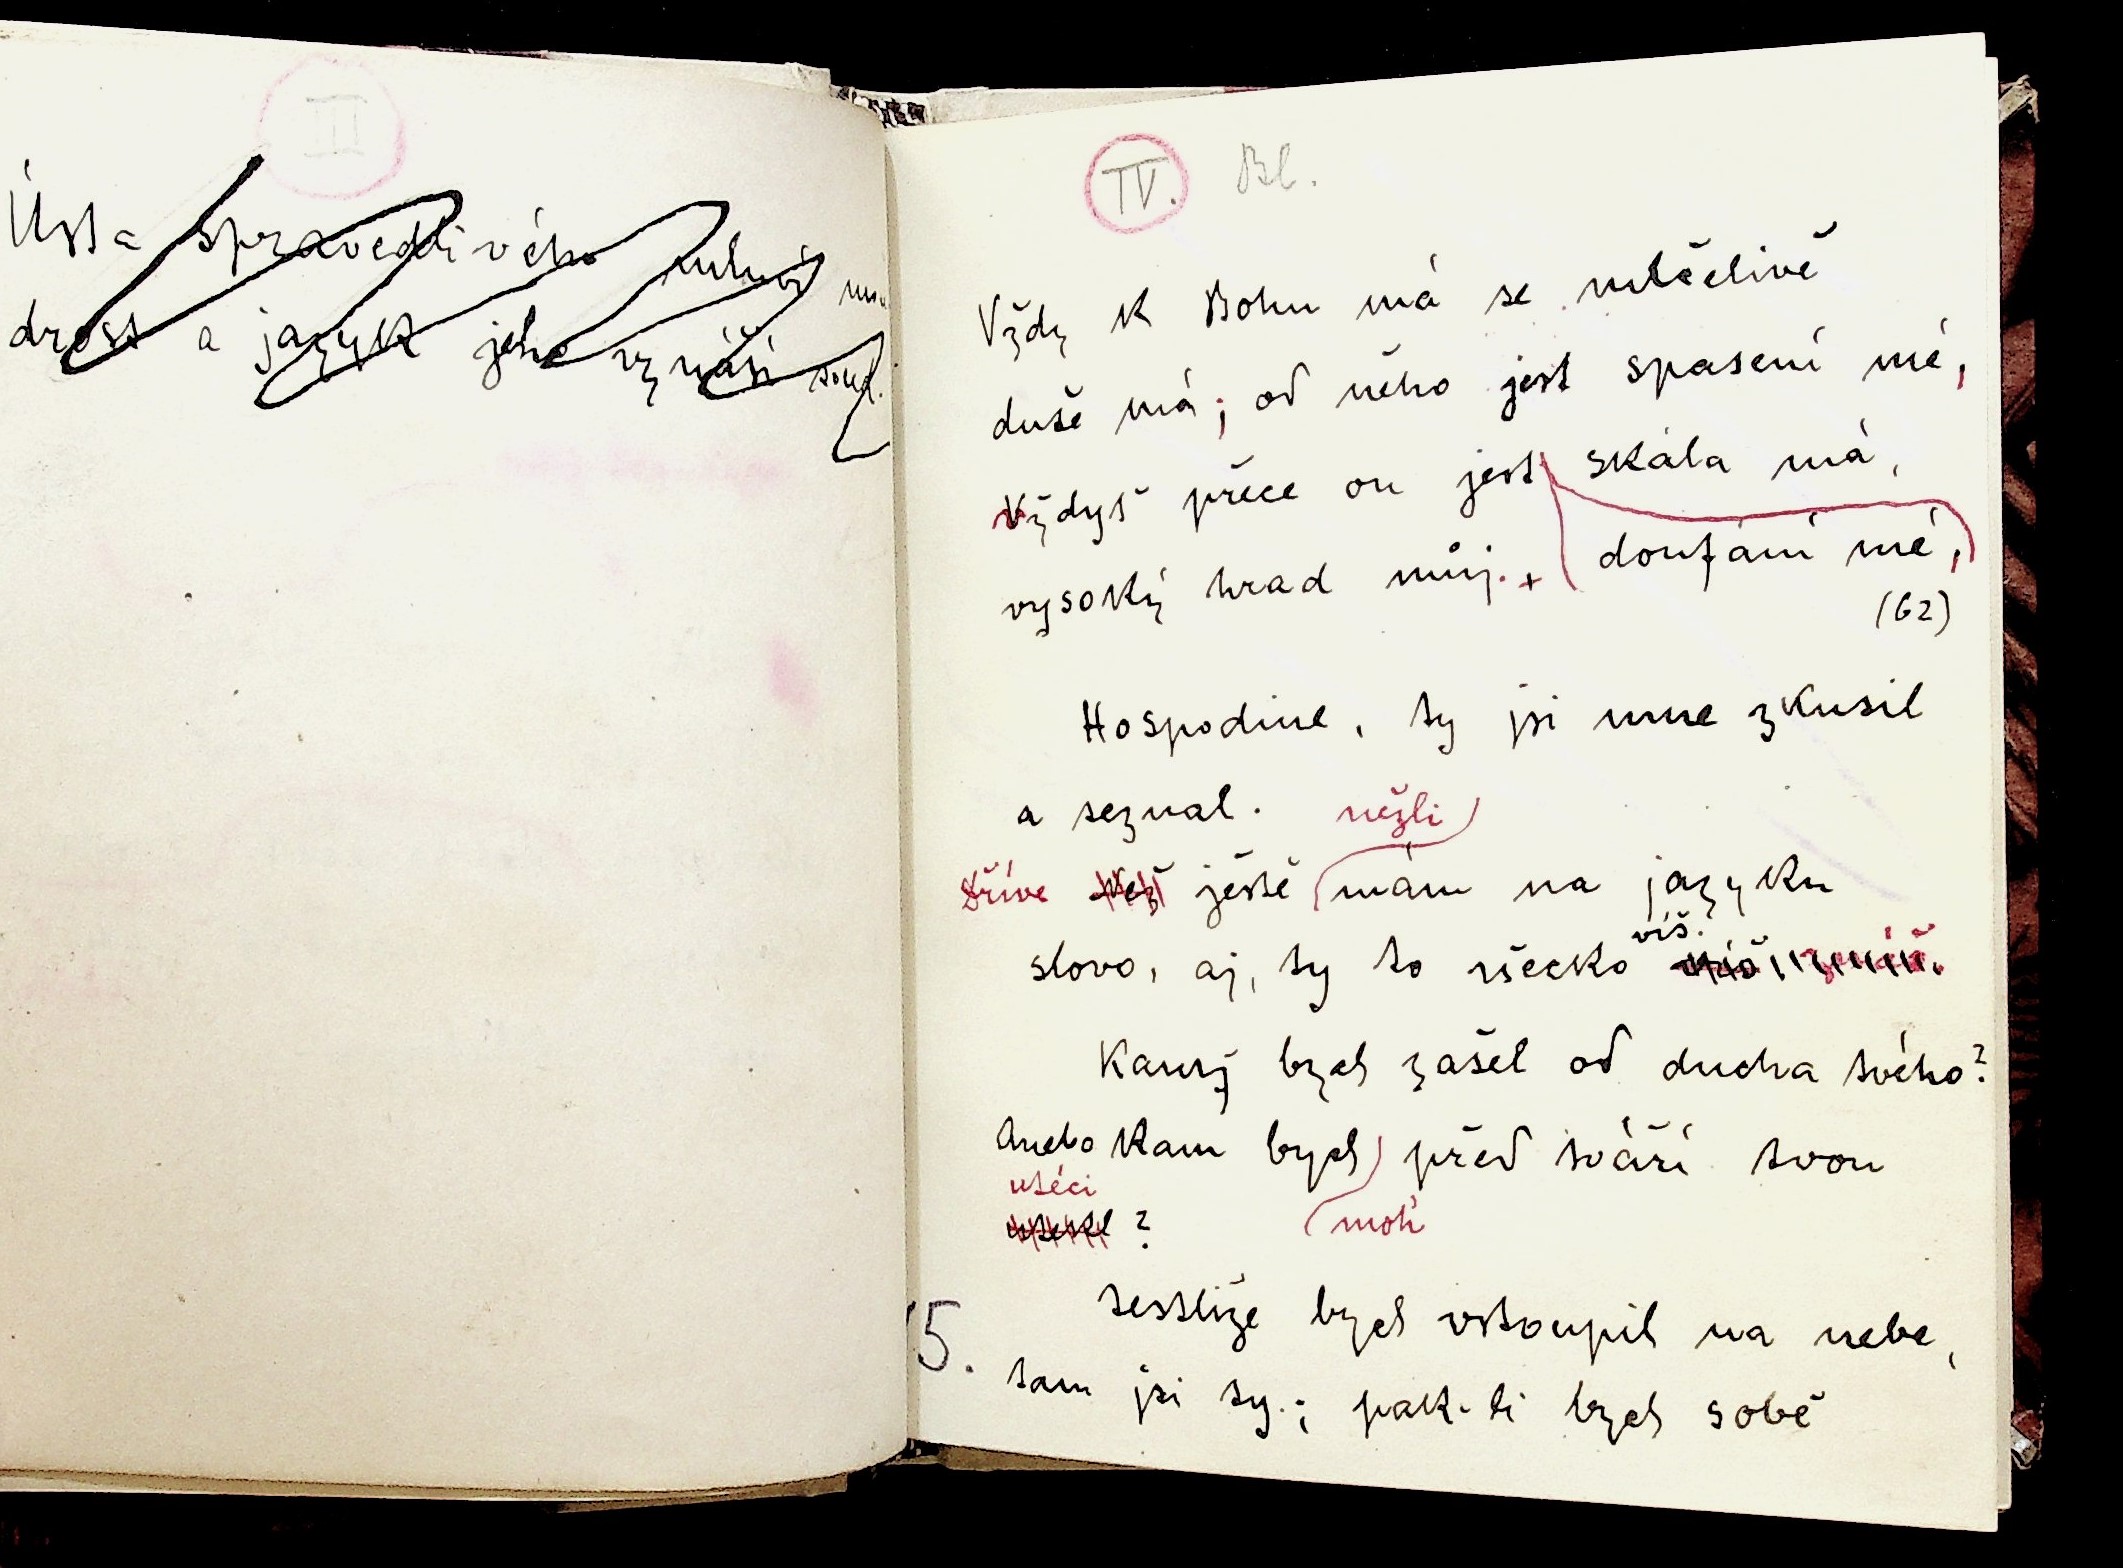 III
Ústa spravedlivého mluví mou-
drost a jazyk jeho vynáší soud.
IV. Bl.
Vždy k Bohu má se mlčelivě
duše má; od něho jest spasení mé,
Vždyť přece on jest skála má,
vysoký hrad můj. + doufání mé,
(62)
Hospodine, ty jsi mne zkusil
a seznal. nežli
Dříve Než ještě mám na jazyku
víš.
slovo, aj, ty to všecko
Kamž bych zašel od ducha tvého?
Anebo kam bych před tváří tvou
utéci
utekl ? moh
Jestliže bych vstoupil na nebe,
5.
tam jsi ty.; pak-li bych sobě